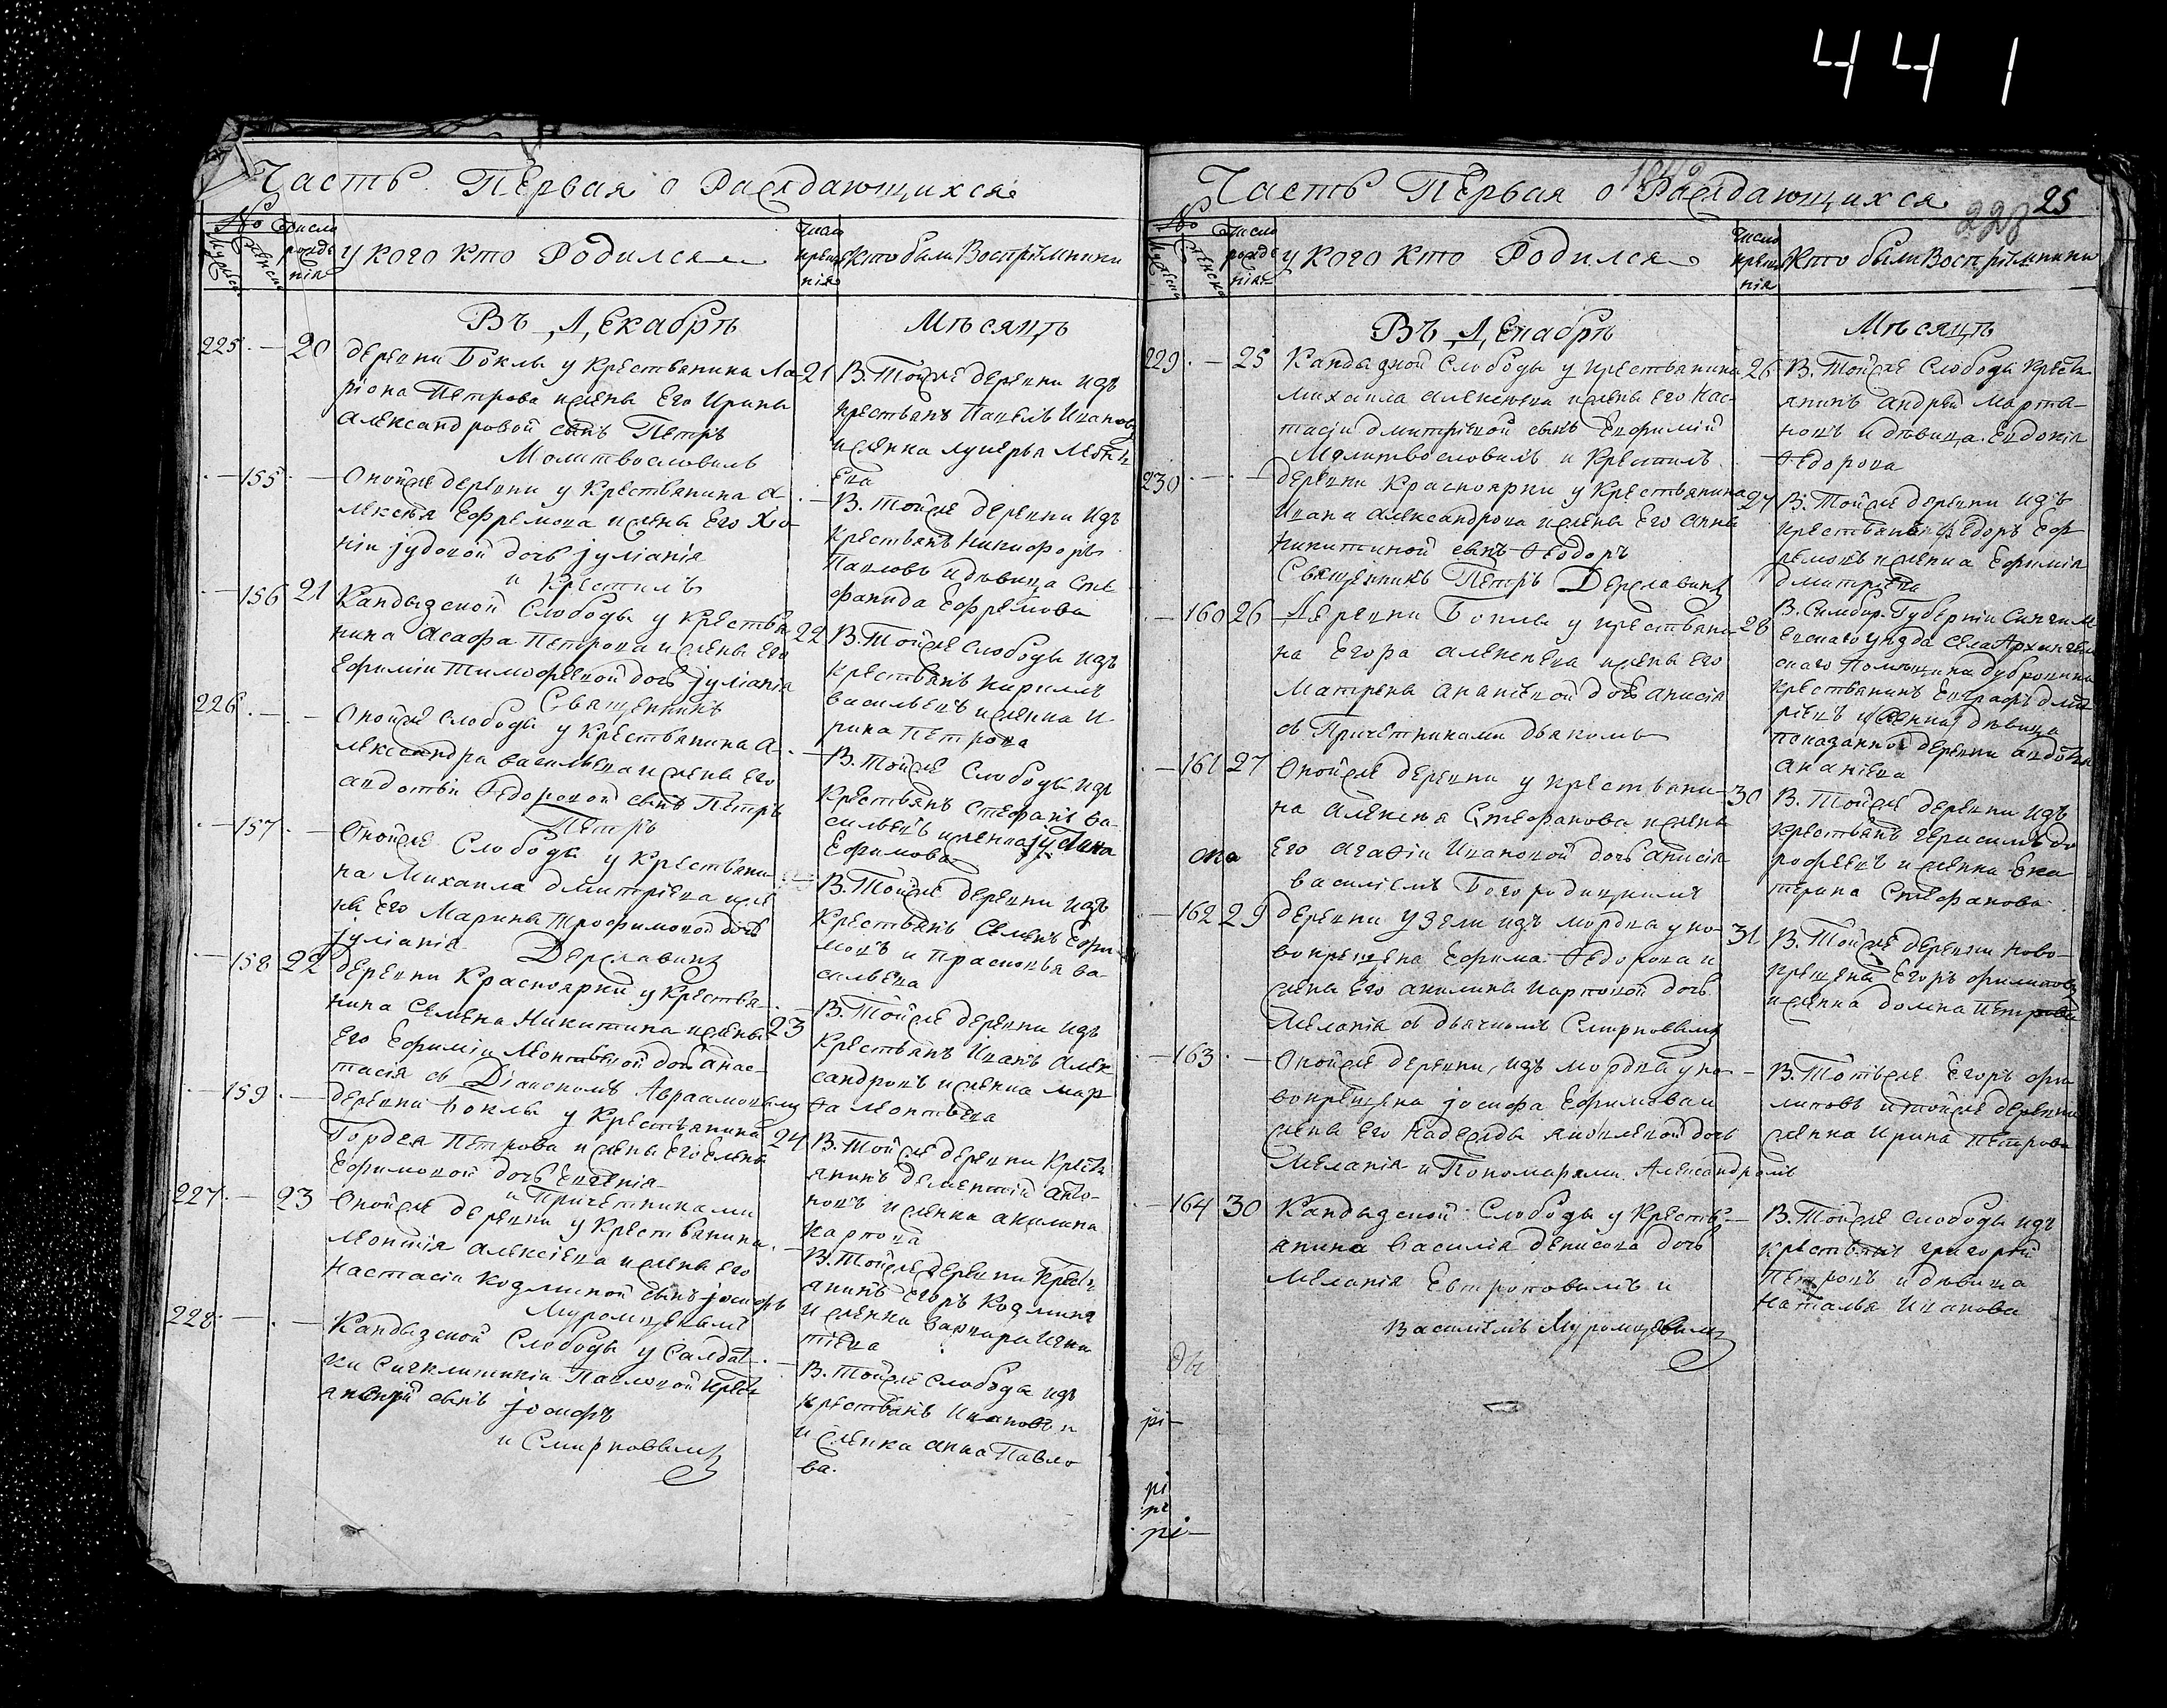 441
Часть Первая о Рождающихся
№
Число рожде нія
у кого кто Родился
Число креще нія
кто были Воспріемники
Въ Декабрѣ
Мѣсяцѣ
225 — 20 деревни Боклы у Крестьянина Ла-
ріона Петрова и жены Его Ирины
александровой сынъ Петръ
Молитвословилъ
21 В. Тойже деревни изъ
крестьянъ Павелъ Ивановъ
и женка лукерья
ева
— 155 — Оной же деревни у Крестьянина а-
лексѣя Ефремова и жены Его Хіо-
ніи јудовой дочь јуліанія
и Крестилъ
— В. тойже деревни изъ
Крестьянъ Никифоръ
Павловъ и дѣвица Сте
фанида Ефремова
— 156 21 Кандызской Слободы у Крестья
нина Асафа Петрова и жены Его
Ефиміи Тимофѣевой дочь јуліанія
Священникъ
22 В. Тойже слободы изъ
крестьянъ Кирилъ
васильевъ и женка И
рина Петрова
226 — — Оной же слободы у Крестьянина А-
лександра васильева и жены Его
авдотьи Ѳедоровой сынъ Петръ
Петръ
— В. тойже Слободы изъ
Крестьянъ Стефанъ ва-
сильевъ и женка јуліана
Ефимова
— 157 — Оной же Слободы у Крестьяни
на Михаила дмитріева и же
ны Его Марины трофимовой дочь
јуліанія
Державинъ
— В. Тойже деревни изъ
Крестьянъ Семенъ Ефи-
мовъ и Прасковья ва-
сильева
— 158 22 деревни Красноярки у Крестья-
нина Семена Никитина и жены
Его Ефиміи Леонтьевой дочь анас-
тасія съ Діакономъ Авраамовымъ
23 — В. Тойже деревни изъ
Крестьянъ Иванъ алек
сандровъ и женка мар
ѳа леонтьева
— 159 — деревни Боклы у Крестьянина
Гордея Петрова и жены Его Елены
Ефимовой дочь Евгенія
и Причетниками
24 В. Тойже деревни Кресть
янинъ дементій анто-
новъ и женка акилина
карпова
227 — 23 Оной же деревни у Крестьянина
леонтія алексіева и жены Его
Настасіи козминой сынъ јосифъ
Муромцевымъ
— В. Тойже деревни Кресть
янинъ Егоръ Козминъ
и женка варвара Игна
тіева
228 — — Кандызской Слободы у Салдат
ки Синклитикіи Павловой
сынъ јосифъ
и Смирновымъ
— В. Тойже слободы изъ
крестьянъ Ивановъ
и женка анна Павло
ва.
Часть Первая о Рождающихся
25
№
Число рожде нія
у кого кто Родился
Число креще нія
кто были Воспріемники
Въ Декабрѣ
Мѣсяцѣ
229 — 25 Кандызкой Слободы у крестьянина
михаила алексѣева и жены Его Нас-
тасіи дмитріевой сынъ Евфимій
Молитвословилъ и Крестилъ
26 В. Тойже Слободы кресть
янинъ андрей Марты-
новъ и дѣвица Евдокія
Ѳедорова
230 — — деревни Красноярки у Крестьянина
Ивана александрова и жены Его анны
никитиной сынъ Ѳеодоръ
Священникъ Петръ Державинъ
27 В. Тойже деревни изъ
крестьянъ Ѳедоръ Еф
ремовъ и женка Ефимія
дмитріева
— 160 26 Деревни Боклы у крестьяни
на Егора алексѣева и жены Его
Матрены ананіевой дочь анисія
съ Причетниками дьякомъ
28 В. Симбир. Губерніи Сингил
еевскаго уезда села Архангель
скаго Помещика дубровина
Крестьянинъ Евграфъ дмит
ріевъ и дѣвица
показанной деревни авдотья
ананіева
— 161 27 Оной же деревни у крестьяни-
на алексѣя Стефанова и жены
Его агаѳіи Ивановой дочь анисія
василіемъ Богородицкимъ
30 В. Тойже деревни изъ
крестьянъ герасимъ до
рофеевъ и женка Ека
терина Стефанова
— 162 29 деревни узели изъ мордвы у но-
вокрещена Ефима Ѳедорова и
жены Его акилины карповой дочь
Меланія съ дьячкомъ Смирновымъ
31 В. Тойже деревни ново-
крещены Егоръ филиповъ
и женка домна Петрова
— 163 — Оной же деревни изъ мордвы у но-
вокрещена јосифа Ефимова и
жены Его надежды яковлевой дочь
Меланія и Пономарями Александромъ
— В. Тотъже Егоръ фи
липовъ и тойже деревни
женка Ирина Петрова
— 164 30 Кандызской Слободы у Кресть-
янина василія денисова дочь
Меланія Евтроповымъ и
Василіемъ Муромцевымъ
— В. Тойже слободы изъ
крестьянъ григорій
Петровъ и дѣвица
Наталья Иванова